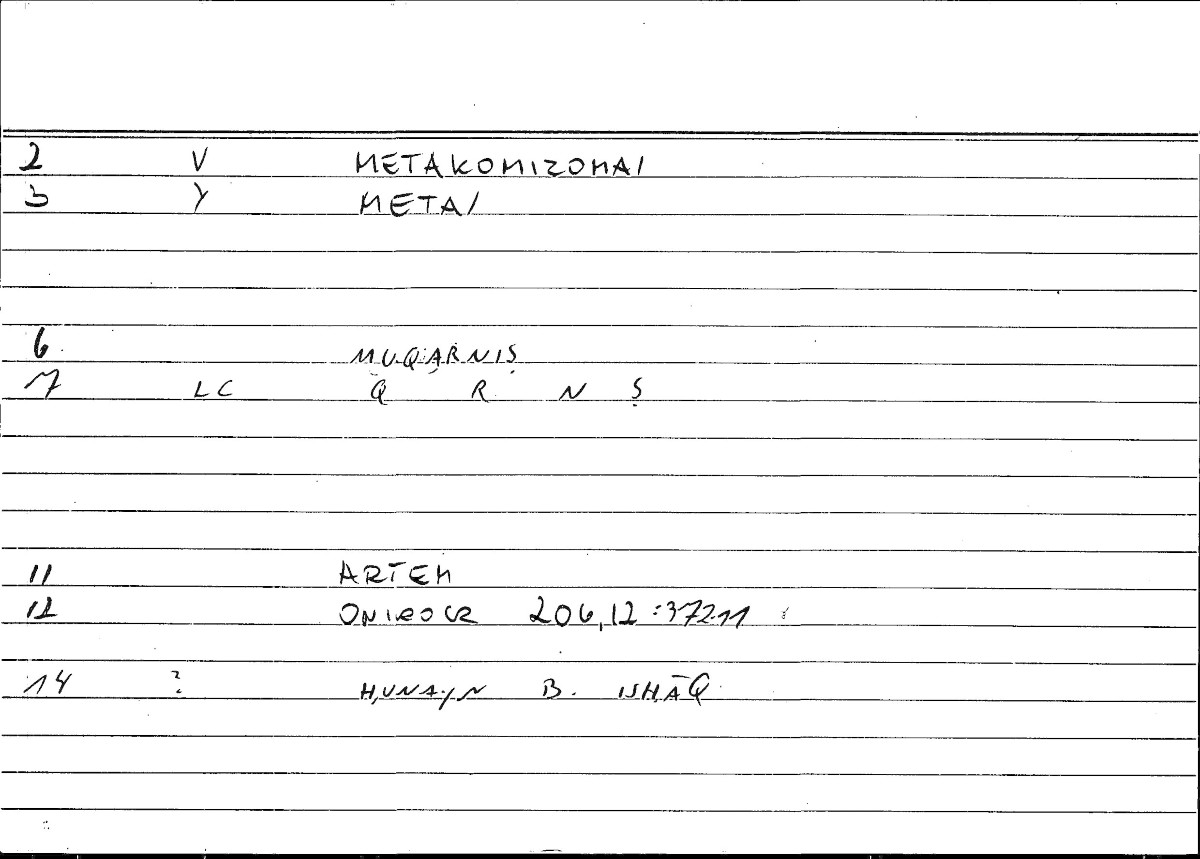 2 V METAKOMIZOMAI
3 Y METAI
6 MUQARNIṢ
7 LC Q R N Ṣ
11 ARTEM
12 ONIROCR 206,12:372.11
14 ? ḤUNAYN B. ISḤĀQ